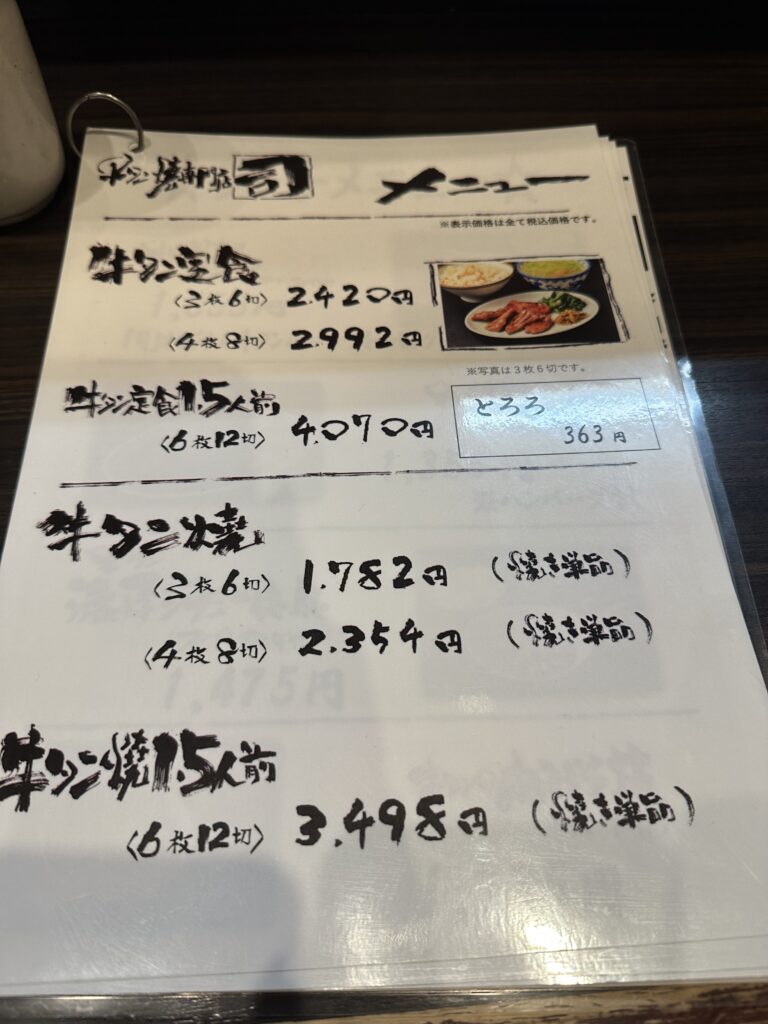 牛タン焼専門店 司 メニュー
※表示価格は全て税込価格です。
牛タン定食
〈3枚6切〉 2.420円
〈4枚8切〉 2.992円
※写真は3枚6切です。
牛タン定食1.5人前
〈6枚12切〉 4.070円
とろろ
363円
牛タン焼
〈3枚6切〉 1.782円 (焼き単品)
〈4枚8切〉 2.354円 (焼き単品)
牛タン焼1.5人前
〈6枚12切〉 3.498円 (焼き単品)
1,475円